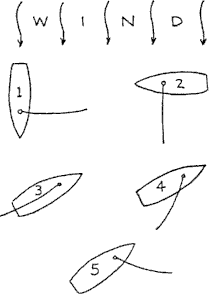 WIND
1
2
3
4
5